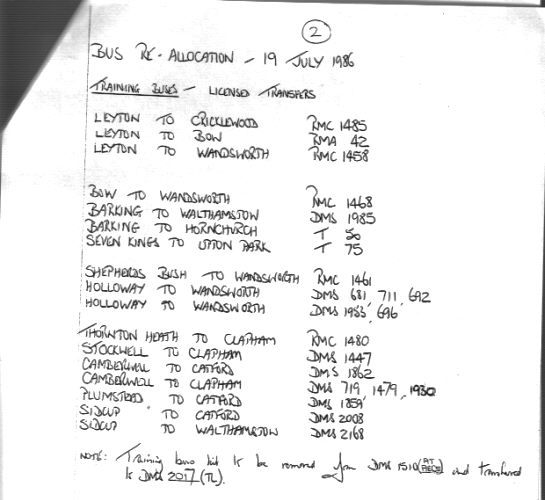 2
BUS RE-ALLOCATION - 19 JULY 1986
TRAINING BUSES - LICENSED TRANSFERS
LEYTON TO CRICKLEWOOD RMC 1485
LEYTON TO BOW RMA 42
LEYTON TO WANDSWORTH RMC 1458
BOW TO WANDSWORTH RMC 1468
BARKING TO WALTHAMSTOW DMS 1985
BARKING TO HORNCHURCH T 50
SEVEN KINGS TO UPTON PARK T 75
SHEPHERDS BUSH TO WANDSWORTH RMC 1461
HOLLOWAY TO WANDSWORTH DMS 681, 711, 692
HOLLOWAY TO WANDSWORTH DMS 1953, 696
THORNTON HEATH TO CLAPHAM RMC 1480
STOCKWELL TO CLAPHAM DMS 1447
CAMBERWELL TO CATFORD DMS 1862
CAMBERWELL TO CLAPHAM DMS 719, 1479, 1930
PLUMSTEAD TO CATFORD DMS 1859
SIDCUP TO CATFORD DMS 2008
SIDCUP TO WALTHAMSTOW DMS 2168
NOTE: Training bus kit to be removed from DMS 1510 and transferred
to DMS 2017 (TL).